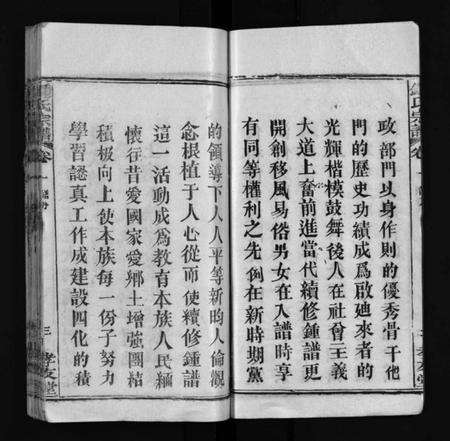 政部門以身作則的優秀骨干他
們的歷史功績成爲啟廸來者的
光輝楷模鼓舞後人在社會主義
大道上奮前進當代續修鍾譜更
開創移風易俗男女在入譜時享
有同等權利之先例在新時期黨
的領導下人人平等新的人倫觀
念根植于人心從而使續修鍾譜
這一活動成爲教育本族人民緬
懷往昔愛國家愛鄉土增強團結
積极向上使本族每一份子努力
學習認真工作成建設四化的積
鍾氏宗譜 卷一
三 孝友堂